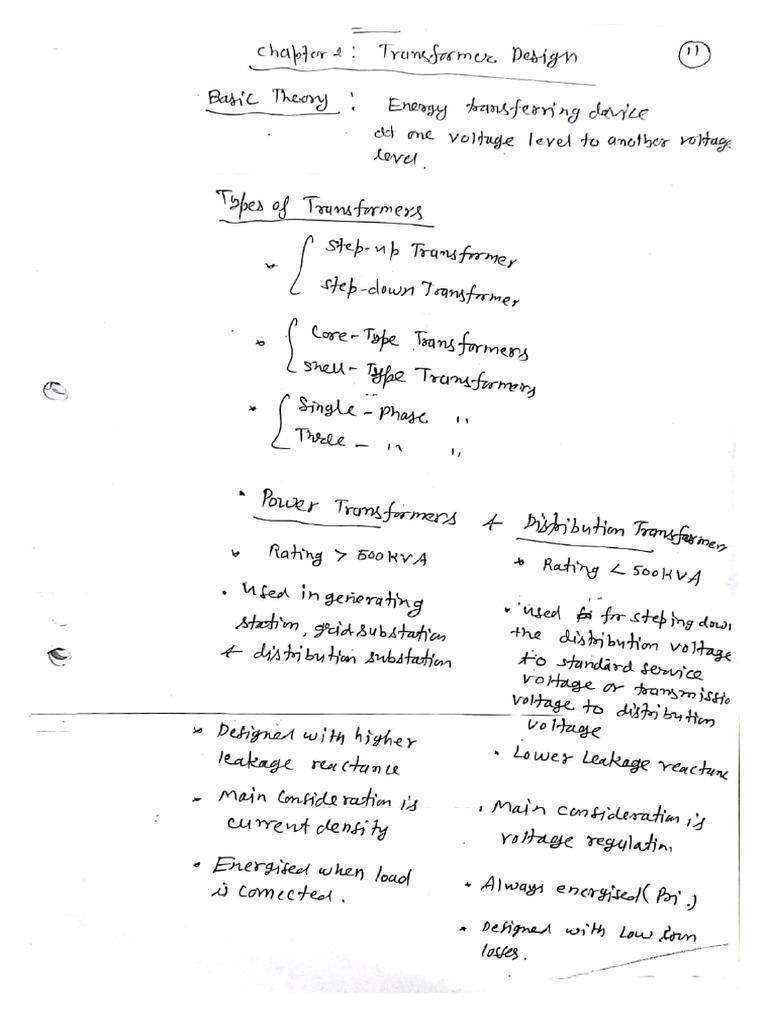 Chapter 2: Transformer Design
11
Basic Theory : Energy transferring device
at one voltage level to another voltage
level.
Types of Transformers
* Step-up Transformer
Step-down Transformer
* Core-Type Transformers
Shell-Type Transformers
* Single-Phase "
Three- " "
• Power Transformers & Distribution Transformers
* Rating > 500KVA
• Used in generating
station, grid substation
& distribution substation
* Designed with higher
leakage reactance
* Main Consideration is
current density
• Energised when load
is connected.
* Rating < 500KVA
• Used for steping down
the distribution voltage
to standard service
voltage or transmissio
voltage to distribution
voltage
• Lower Leakage reactance
• Main consideration is
voltage regulation
• Always energised (Pri.)
* Designed with Low iron
losses.